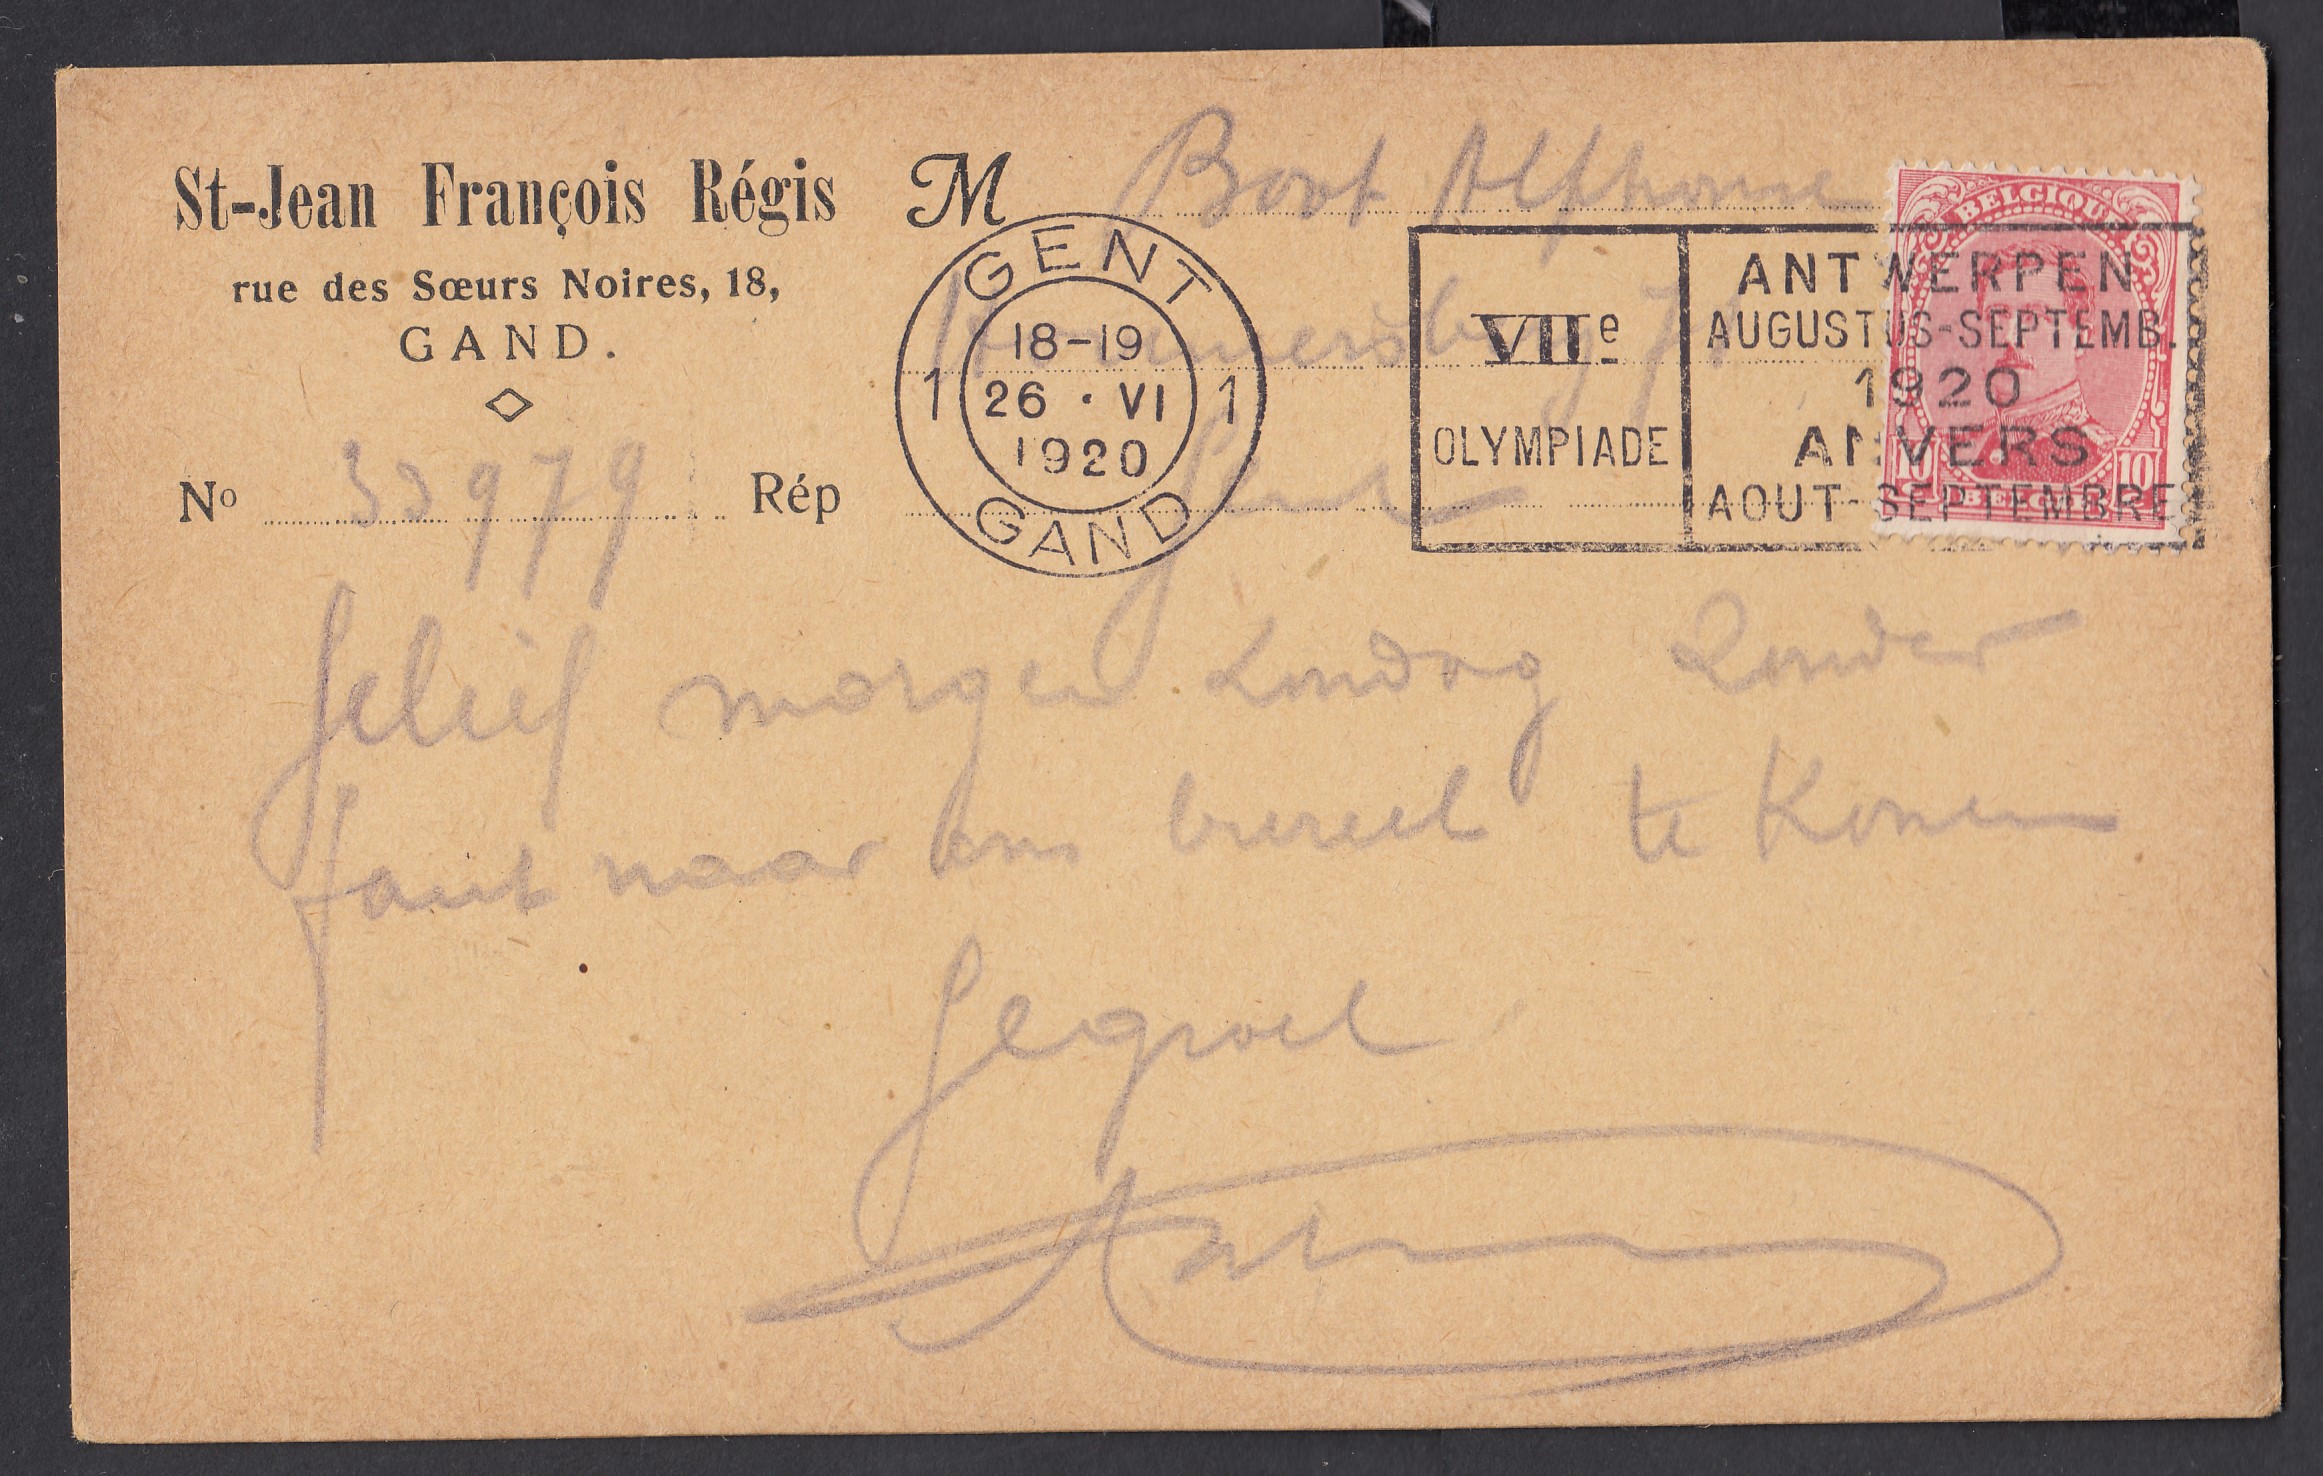 St-Jean François Régis
rue des Sœurs Noires, 18,
GAND.
No 33979 Rép
M Boot Alphonse
Gent
GENT
18-19
1 26 · VI 1
1920
GAND
VIIe
OLYMPIADE
ANTWERPEN
AUGUSTUS-SEPTEMB.
1920
ANVERS
AOUT-SEPTEMBRE
BELGIQUE
10 10
BELGIË
Gelief morgen Zondag zonder
faut naar ons bureel te komen
Gegroet